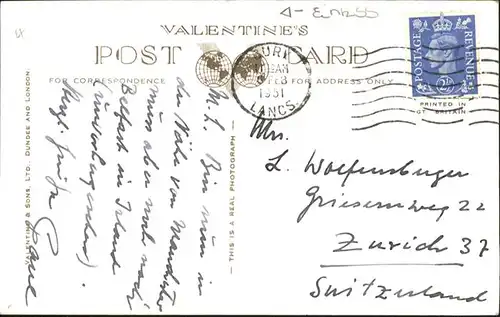 VALENTINE'S
POST CARD
FOR CORRESPONDENCE
FOR ADDRESS ONLY
1951
LANCS.
POSTAGE
REVENUE
2½
PRINTED IN
GT. BRITAIN
VALENTINE & SONS, LTD., DUNDEE AND LONDON.
THIS IS A REAL PHOTOGRAPH
M. L. Bin nun in
der Nähe von Manchester
muss aber noch nach
Belfast in Irland
(vorwiegender).
Herzl. Grüße
Mr.
L. Wolfensburger
Griesernweg 22
Zurich 37
Switzerland